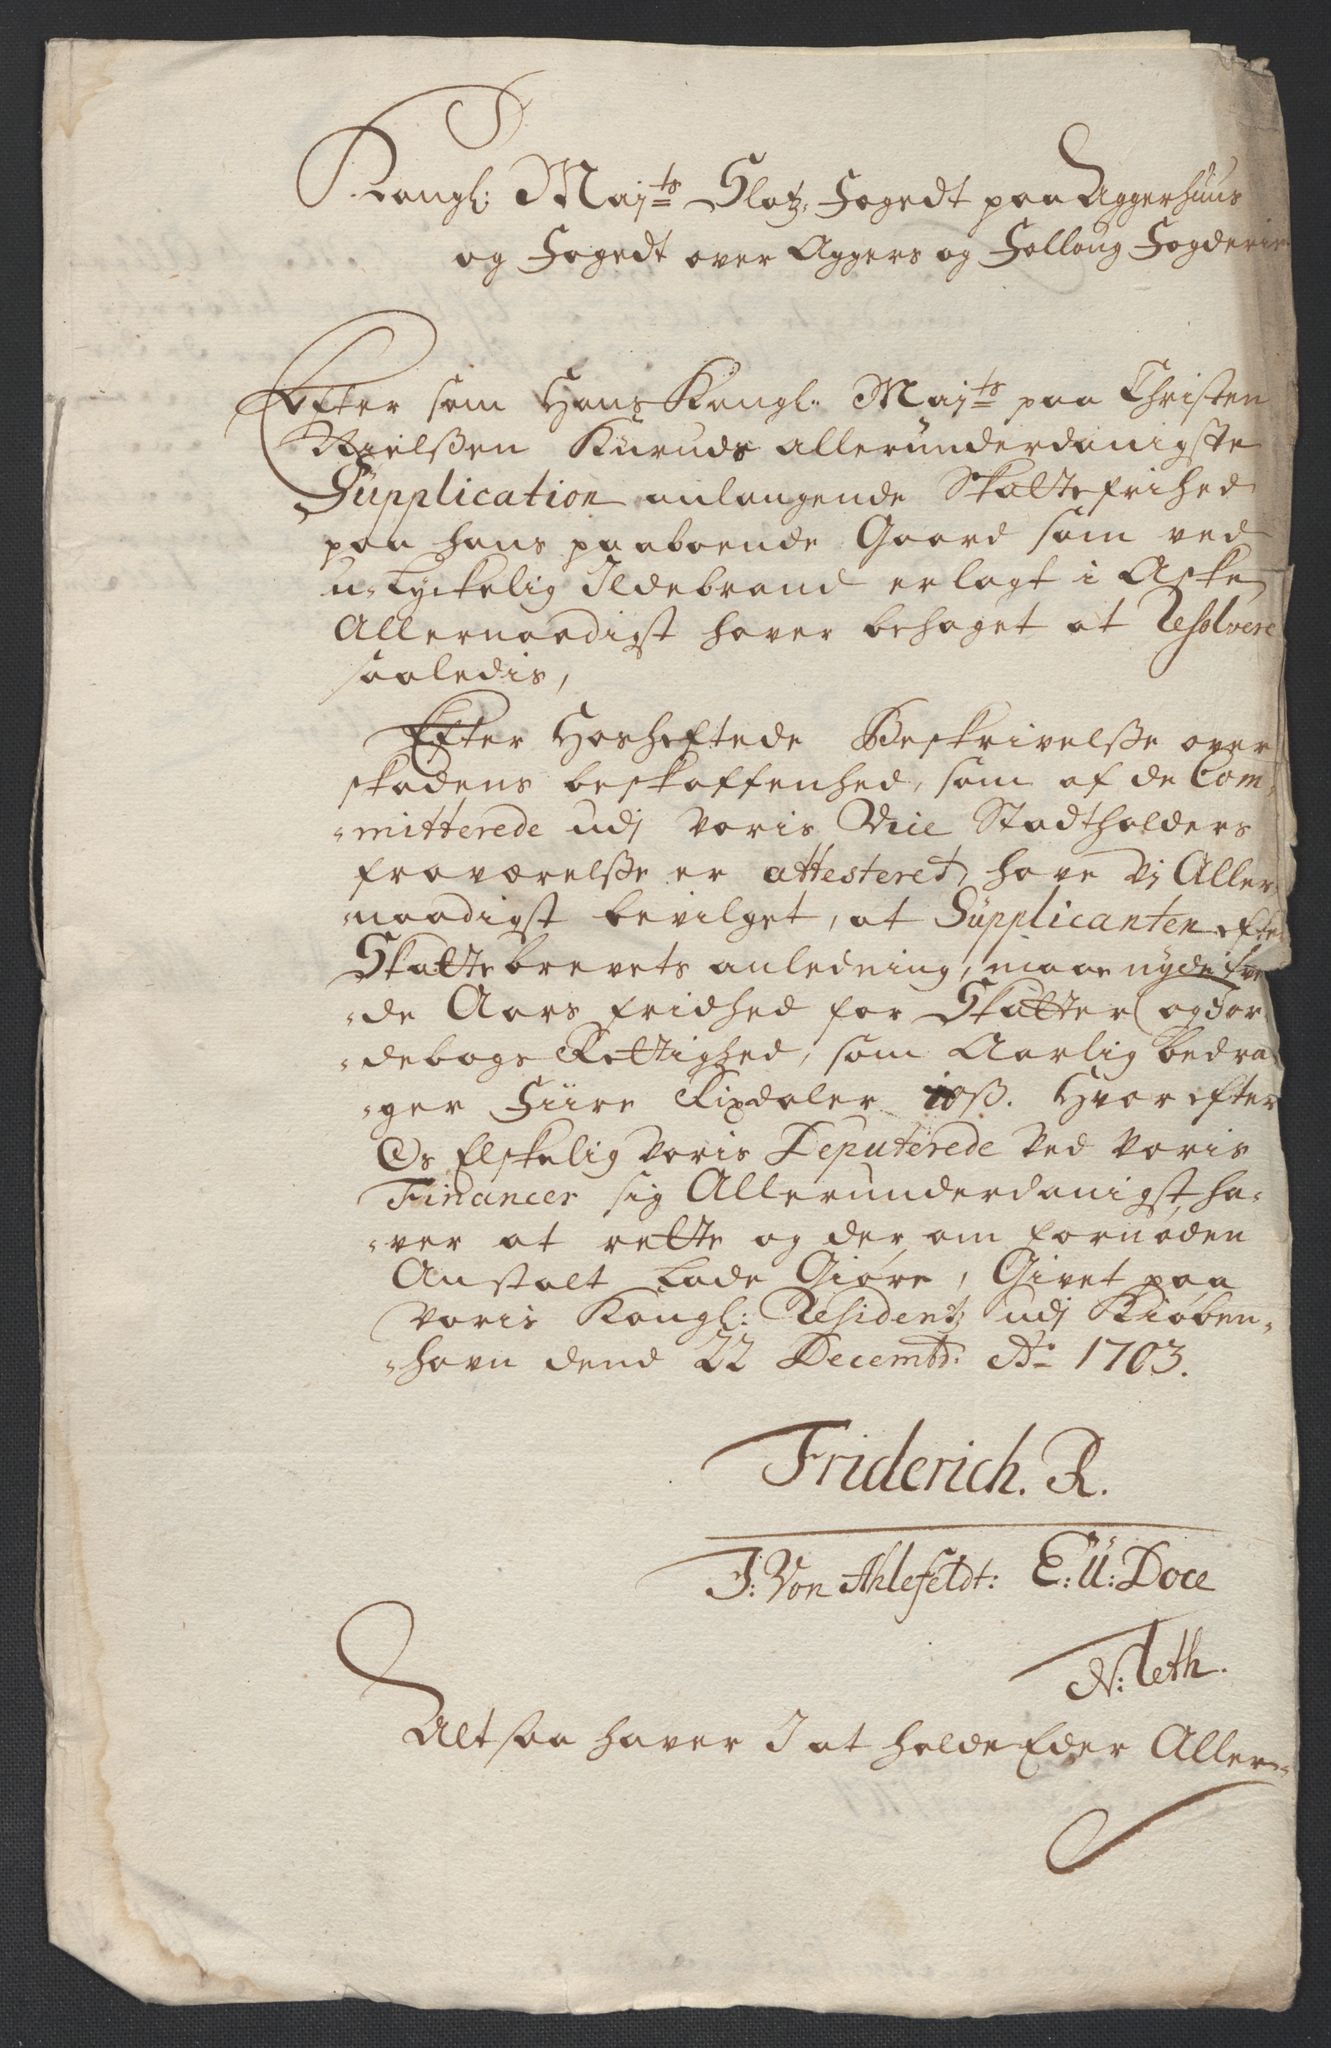 Kongl: Maj:ts Slotz, Fogedt paa Aggerhuus
og Fogedt over Aggers og Folloug Fogderie
Efter som Hans Kongl: Maj:ts paa Christen
Nielßen Kuruds allerunderdanigste
Supplication anlangende Skatte frihed
paa hans paaboende Gaard som ved
u-lyckelig Ildebrand er lagt i Aske,
Allernaadigst haver behaget at Resolvere
saaledis,
Efter Hosheftede Beskrivelße over
skadens beskaffenhed, som af de Com-
-mitterede udj Voris Vice Stadtholders
fraværelße er attesteret, have Vj Aller-
-naadigst bevilget, at Supplicanten efter
Skattebrevets anledning, maae nyde
-de Aars fridhed for Skatter og Jor-
-debogs Rettighed, som Aarlig bedra-
-ger Fiire Rixdaler 10ß. Hvor efter
Os Elskelig Voris Deputerede Ved Voris
Financer sig Allerunderdanigst ha-
-ver at rette og der om fornøden
Anstalt Lade Giøre, Givet paa
Voris Kongl: Residentz udj Kiøben-
-havn dend 22 Decembr: Ao 1703.
Friderich. R.
J: Von Ahlefeldt: E: U: Doce
N: Leth.
Alt saa haver I at holde Eder Aller-